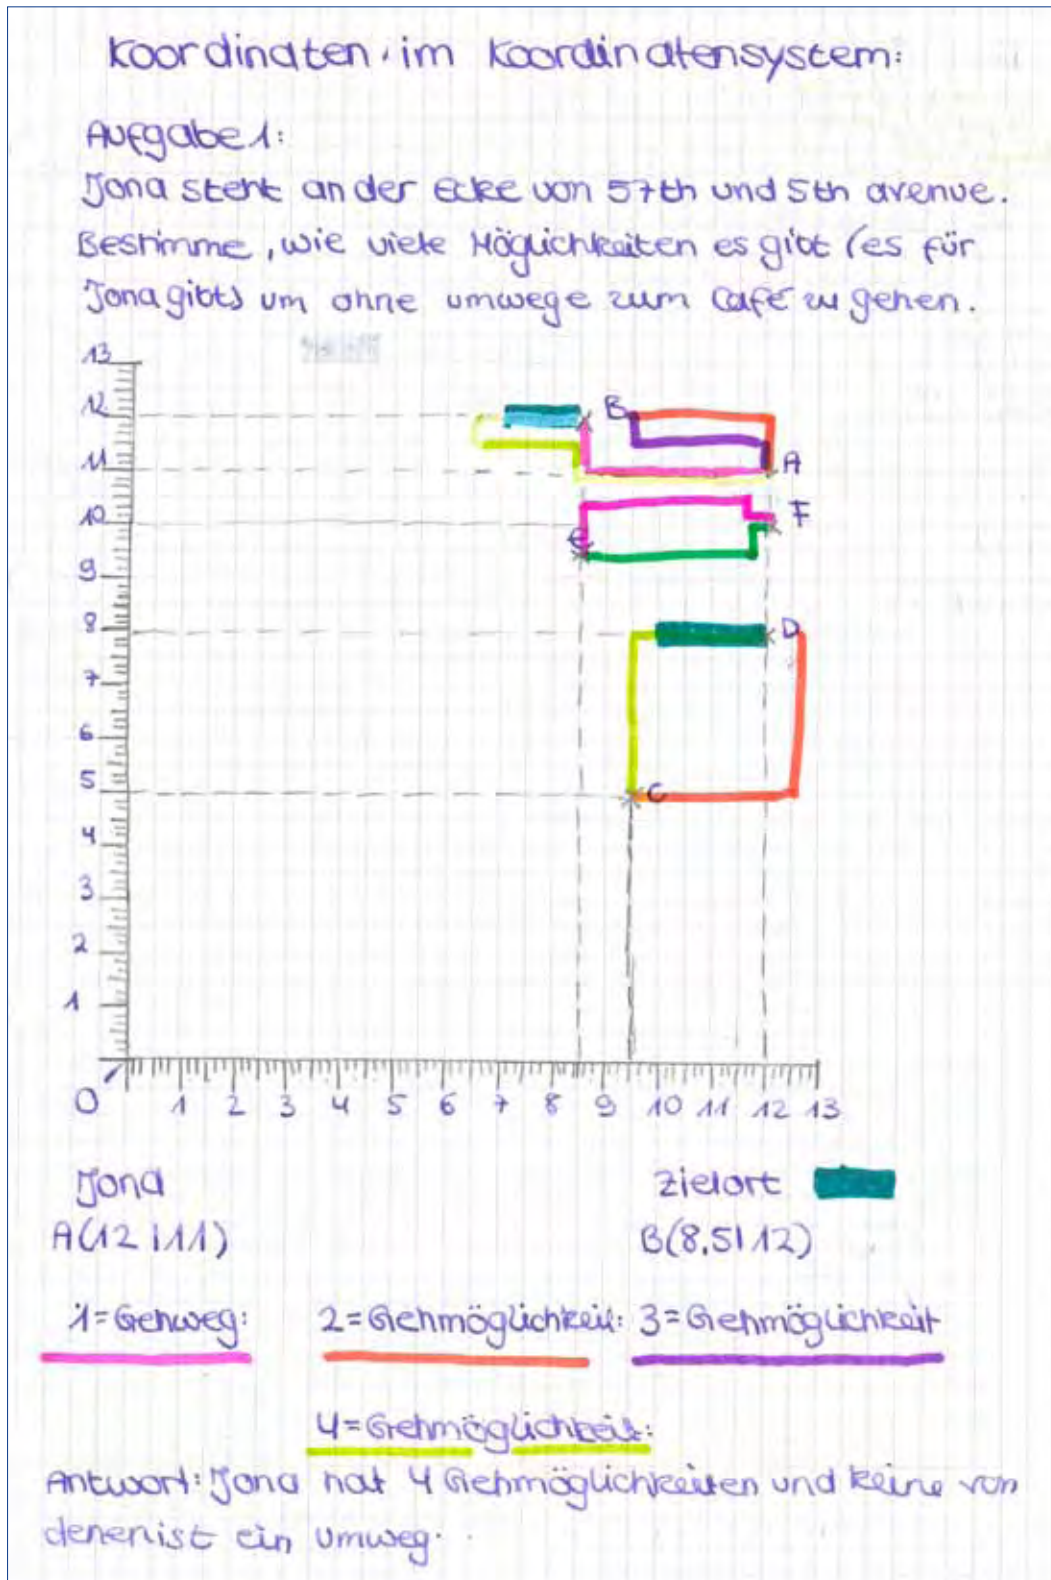 Koordinaten im Koordinatensystem:
Aufgabe 1:
Jona steht an der Ecke von 57th und 5th avenue.
Bestimme, wie viele Möglichkeiten es gibt (es für
Jona gibt) um ohne umwege zum Café zu gehen.
13
12
11
10
9
8
7
6
5
4
3
2
1
B
A
F
E
D
C
0 1 2 3 4 5 6 7 8 9 10 11 12 13
Jona Zielort
A(12|11) B(8,5|12)
1=Gehweg: 2=Gehmöglichkeit: 3=Gehmöglichkeit
4=Gehmöglichkeit:
Antwort: Jona hat 4 Gehmöglichkeiten und keine von
denen ist ein umweg.